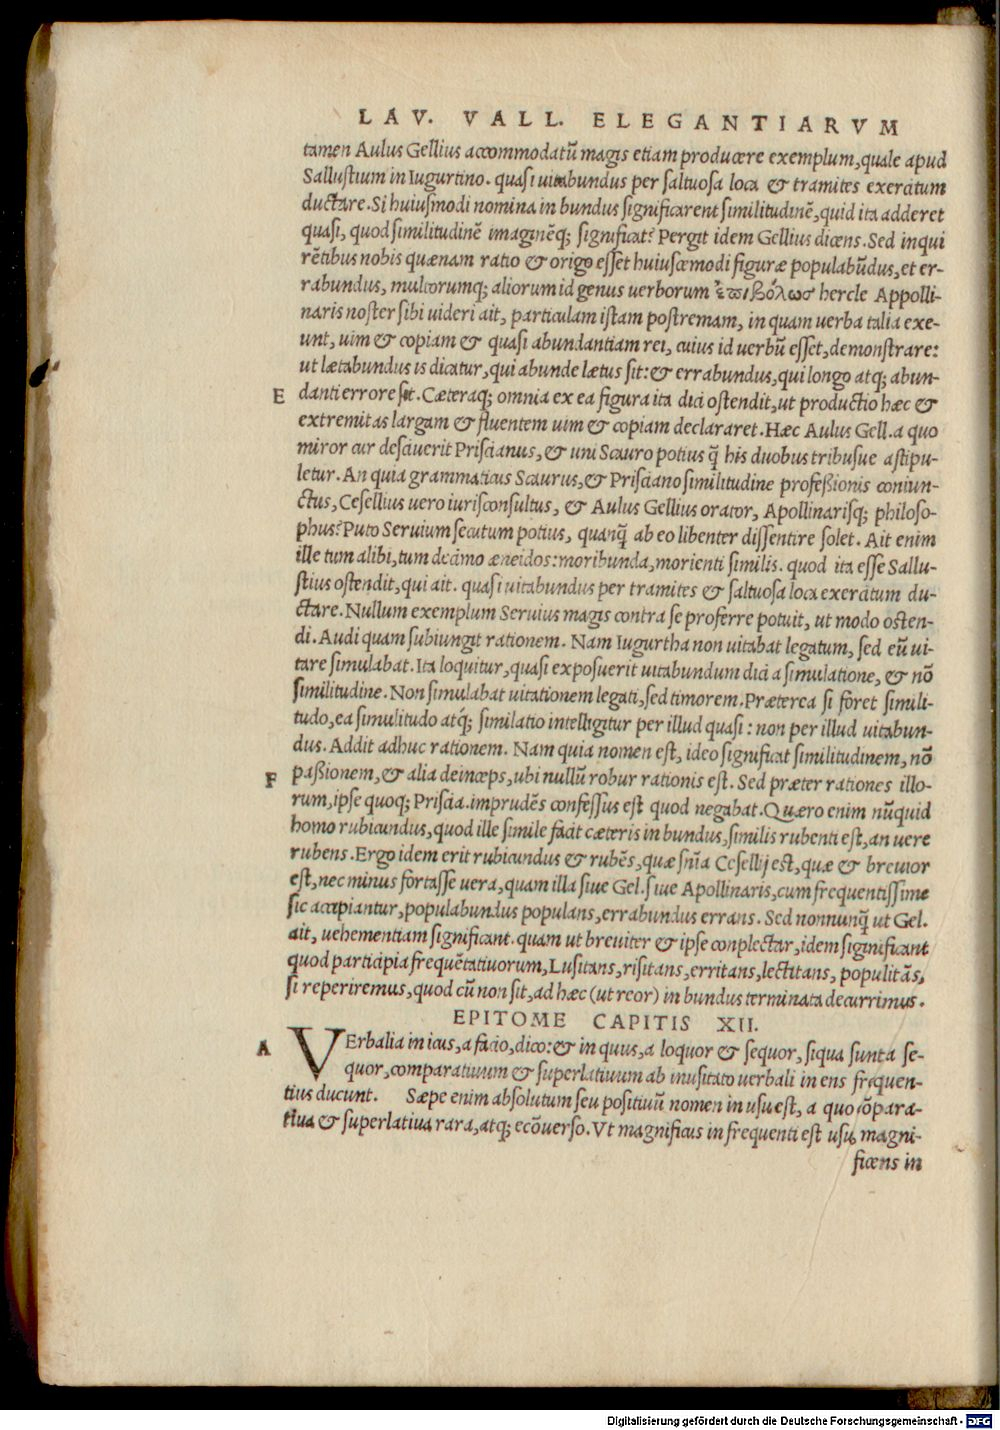 LAV. VALL. ELEGANTIARVM
tamen Aulus Gellius accommodatū magis etiam producere exemplum, quale apud
Sallustium in Iugurtino. quasi uitabundus per saltuosa loca & tramites exercitum
ductare. Si huiusmodi nomina in bundus significarent similitudinē, quid ita adderet
quasi, quod similitudinē imaginēq; significat? Pergit idem Gellius dicens. Sed inqui
rētibus nobis quænam ratio & origo esset huiuscemodi figuræ populabūdus, et er-
rabundus, multorumq; aliorum id genus uerborum ἐπιβόλωσ hercle Appolli-
naris noster sibi uideri ait, particulam istam postremam, in quam uerba talia exe-
unt, uim & copiam & quasi abundantiam rei, cuius id uerbū esset, demonstrare:
ut lætabundus is dicatur, qui abunde lætus sit: & errabundus, qui longo atq; abun-
E danti errore sit. Cæteraq; omnia ex ea figura ita dici ostendit, ut productio hæc &
extremitas largam & fluentem uim & copiam declararet. Hæc Aulus Gell. a quo
miror cur desciuerit Priscianus, & uni Scauro potius q̄ his duobus tribusue astipu-
letur. An quia grammaticus Scaurus, & Prisciano similitudine professionis coniun-
ctus, Cesellius uero iurisconsultus, & Aulus Gellius orator, Apollinarisq; philoso-
phus? Puto Seruium secutum potius, quanq̄ ab eo libenter dissentire solet. Ait enim
ille tum alibi, tum decimo æneidos: moribunda, morienti similis. quod ita esse Sallu-
stius ostendit, qui ait. quasi uitabundus per tramites & saltuosa loca exercitum du-
ctare. Nullum exemplum Seruius magis contra se proferre potuit, ut modo osten-
di. Audi quam subiungit rationem. Nam Iugurtha non uitabat legatum, sed eū ui-
tare simulabat. Ita loquitur, quasi exposuerit uitabundum dici a simulatione, & nō
similitudine. Non simulabat uitationem legati, sed timorem. Præterea si foret simili-
tudo, ea simulitudo atq́; similatio intelligitur per illud quasi: non per illud uitabun-
dus. Addit adhuc rationem. Nam quia nomen est, ideo significat similitudinem, nō
F passionem, & alia deinceps, ubi nullū robur rationis est. Sed præter rationes illo-
rum, ipse quoq; Priscia. imprudēs confessus est quod negabat. Quæro enim nūquid
homo rubicundus, quod ille simile facit cæteris in bundus, similis rubenti est, an uere
rubens. Ergo idem erit rubicundus & rubēs, quæ sn̄ia Cesellij est, quæ & breuior
est, nec minus fortasse uera, quam illa siue Gel. siue Apollinaris, cum frequentissime
sic accipiantur, populabundus populans, errabundus errans. Sed nonnunq̄ ut Gel.
ait, uehementiam significant. quam ut breuiter & ipse conplectar, idem siginificant
quod participia frequētatiuorum, Lusitans, risitans, erritans, lectitans, populitās,
si reperiremus, quod cū non sit, ad hæc (ut reor) in bundus terminata decurrimus.
EPITOME CAPITIS XII.
A VErbalia in icus, a facio, dico: & in quus, a loquor & sequor, siqua sunt a se-
quor, comparatiuum & superlatiuum ab inusitato uerbali in ens frequen-
tius ducunt. Sæpe enim absolutum seu positiuū nomen in usu est, a quo cōpara-
tiua & superlatiua rara, atq; ecōuerso. Vt magnificus in frequenti est usu, magni-
ficens in
Digitalisierung gefördert durch die Deutsche Forschungsgemeinschaft - DFG